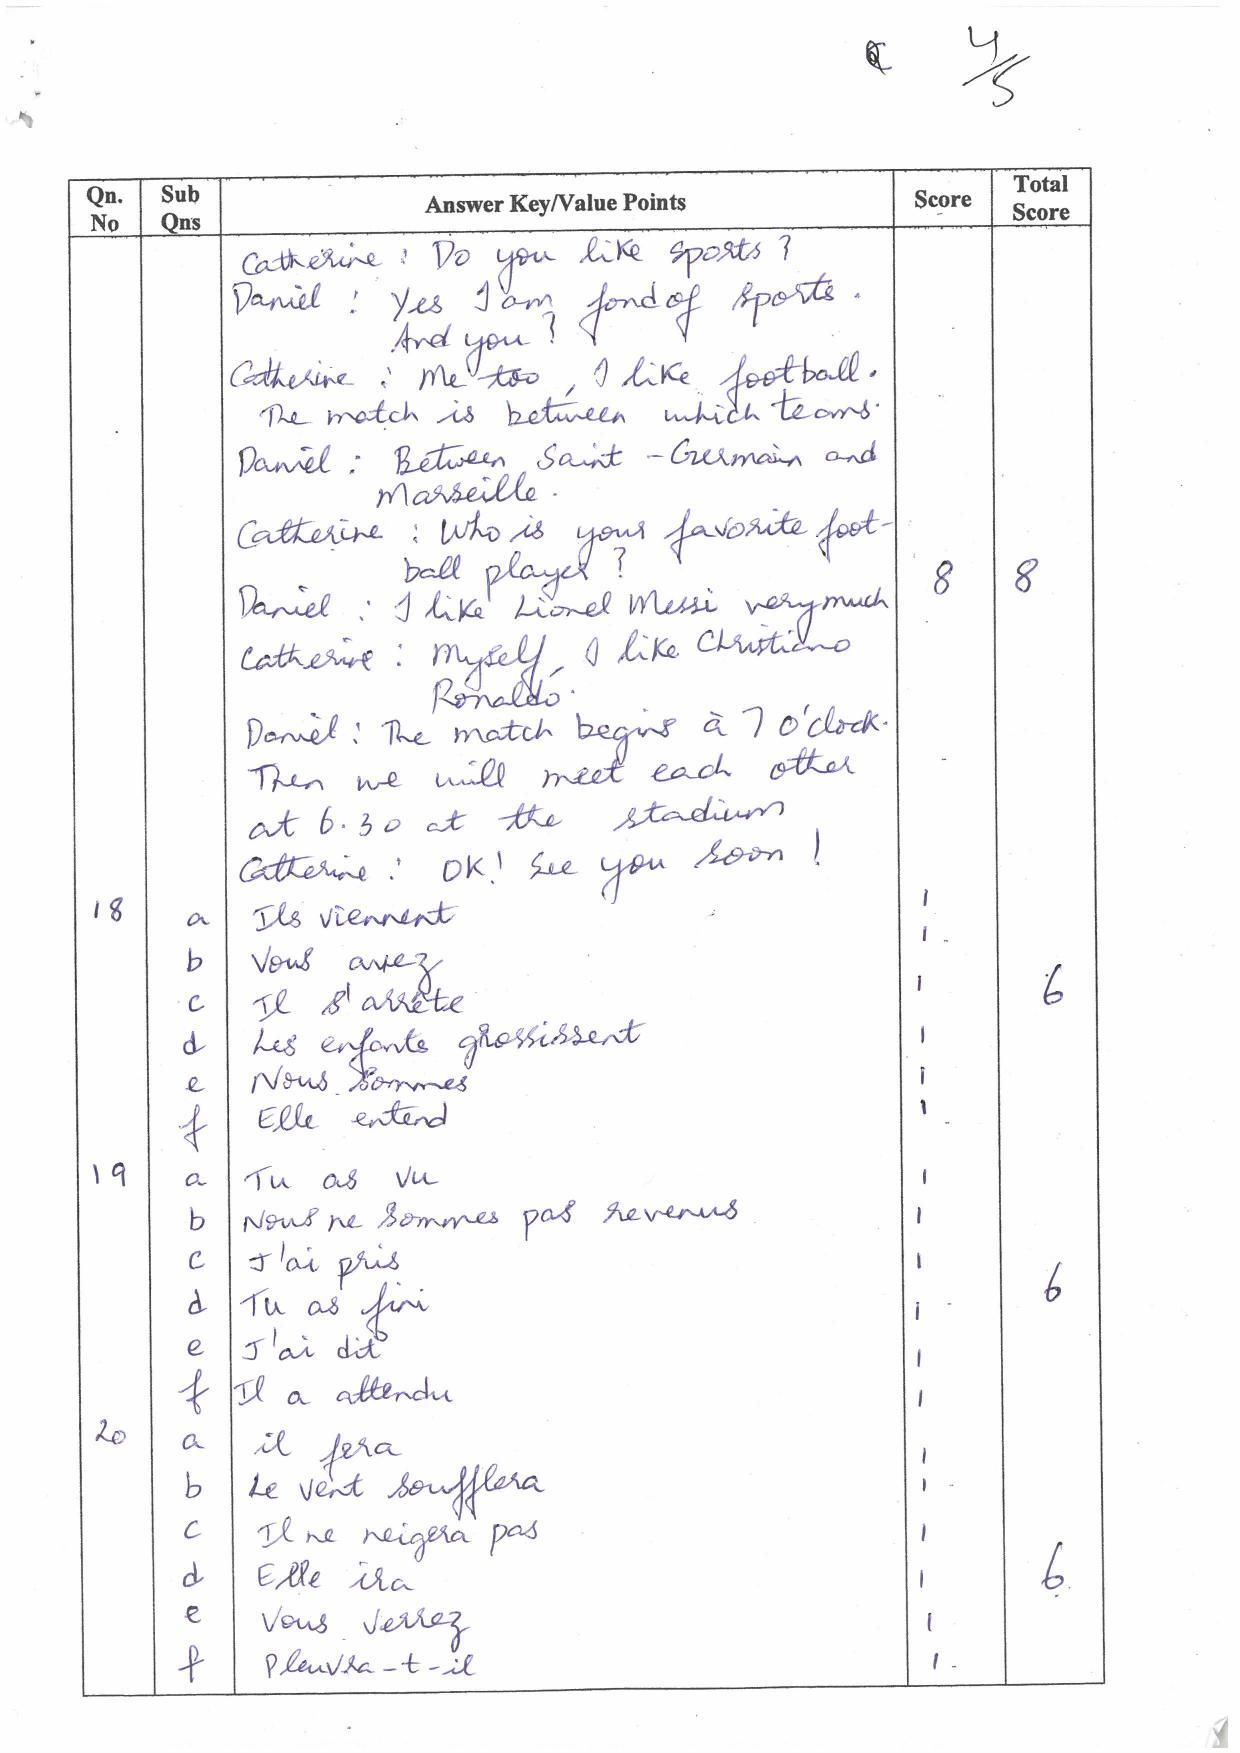 4/5
Qn. No Sub Qns Answer Key/Value Points Score Total Score
Catherine : Do you like sports ?
Daniel : Yes I am fond of sports.
And you ?
Catherine : Me too, I like football.
The match is between which teams.
Daniel : Between Saint-Germain and
Marseille.
Catherine : Who is your favorite foot-
ball player ?
8 8
Daniel : I like Lionel Messi very much
Catherine : Myself, I like Christiano
Ronaldo.
Daniel : The match begins à 7 o'clock.
Then we will meet each other
at 6.30 at the stadium
Catherine : OK! See you soon !
18 a Ils viennent 1
b Vous avez 1
c Il s'arrête 1 6
d Les enfants grossissent 1
e Nous sommes 1
f Elle entend 1
19 a Tu as vu 1
b Nous ne sommes pas revenus 1
c J'ai pris 1
d Tu as fini 1 6
e J'ai dit 1
f Il a attendu 1
20 a il fera 1
b Le vent soufflera 1
c Il ne neigera pas 1
d Elle ira 1 6
e Vous verrez 1
f Pleuvra-t-il 1